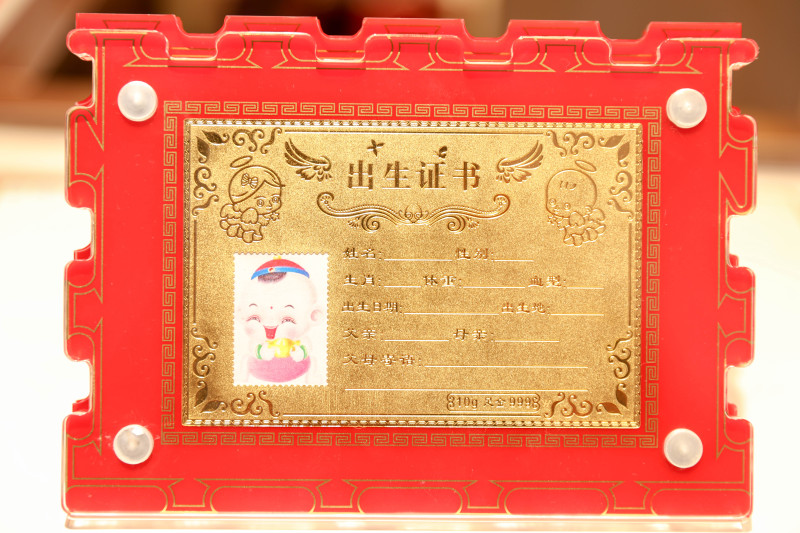 出生证书
姓名: 性别:
生肖: 体重: 血型:
出生日期: 出生地:
父亲: 母亲:
父母寄语:
10g 足金 999